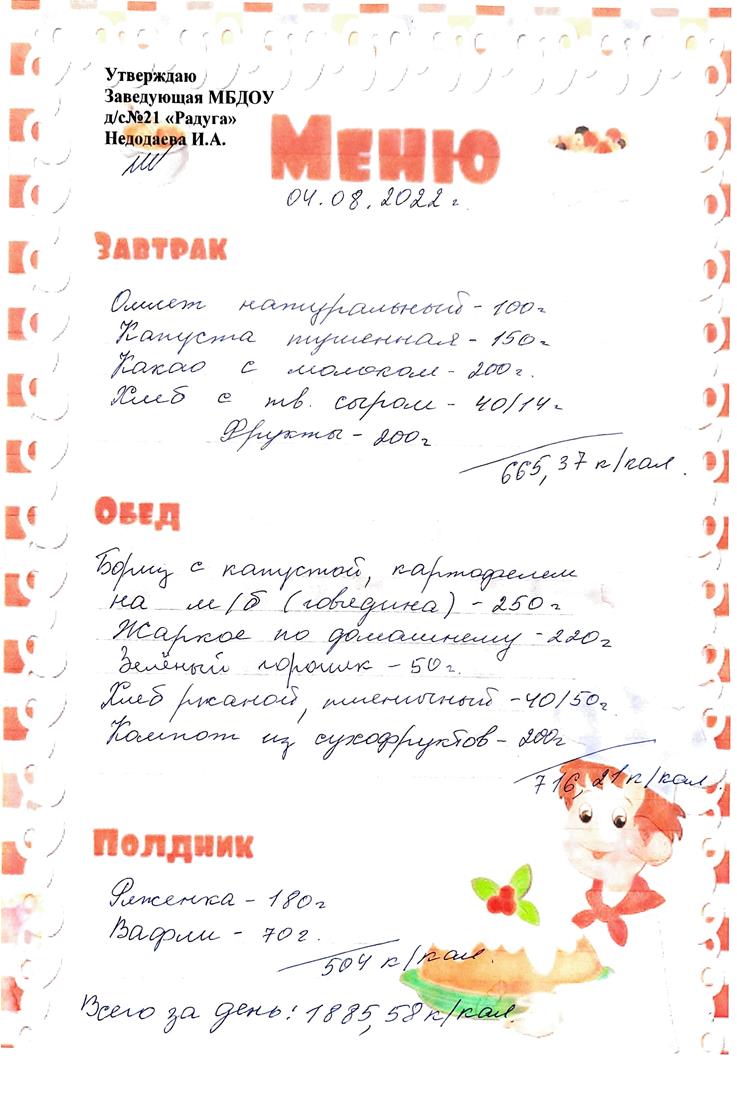 Утверждаю
Заведующая МБДОУ
д/с№21 «Радуга»
Недодаева И.А.
Меню
04.08.2022 г.
Завтрак
Омлет натуральный - 100г
Капуста тушенная - 150г
Какао с молоком - 200г.
Хлеб с тв. сыром - 40/14г
Фрукты - 200г
665,37 к/кал.
Обед
Борщ с капустой, картофелем
на м/б (говядина) - 250г
Жаркое по домашнему - 220г
Зелёный горошек - 50г.
Хлеб ржаной, пшеничный - 40/50г.
Компот из сухофруктов - 200г
716,21 к/кал.
Полдник
Ряженка - 180г
Вафли - 70г.
504 к/кал.
Всего за день: 1885,58 к/кал.